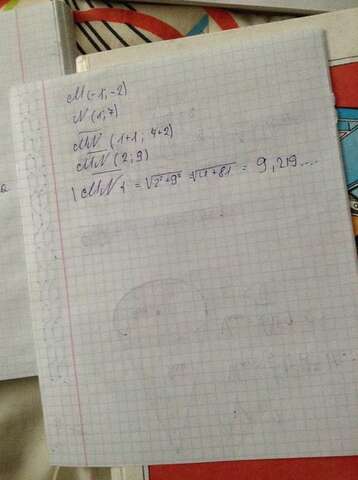 M(-1;-2)
N(1;7)
MN (1+1; 7+2)
MN (2; 9)
|MN| = √2²+9² = √4+81 = 9,219....